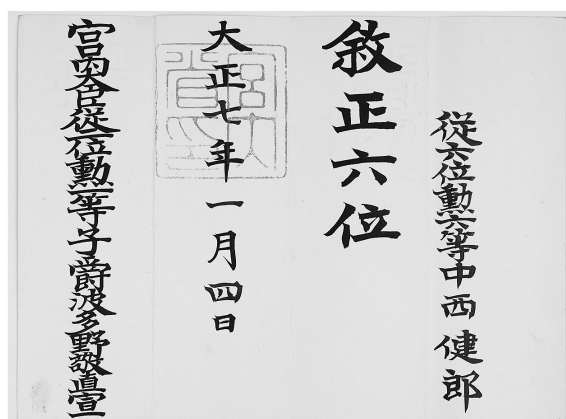 從六位勳六等中西健郎
敘正六位
大正七年一月四日
宮内大臣從二位勳一等子爵波多野敬直宣